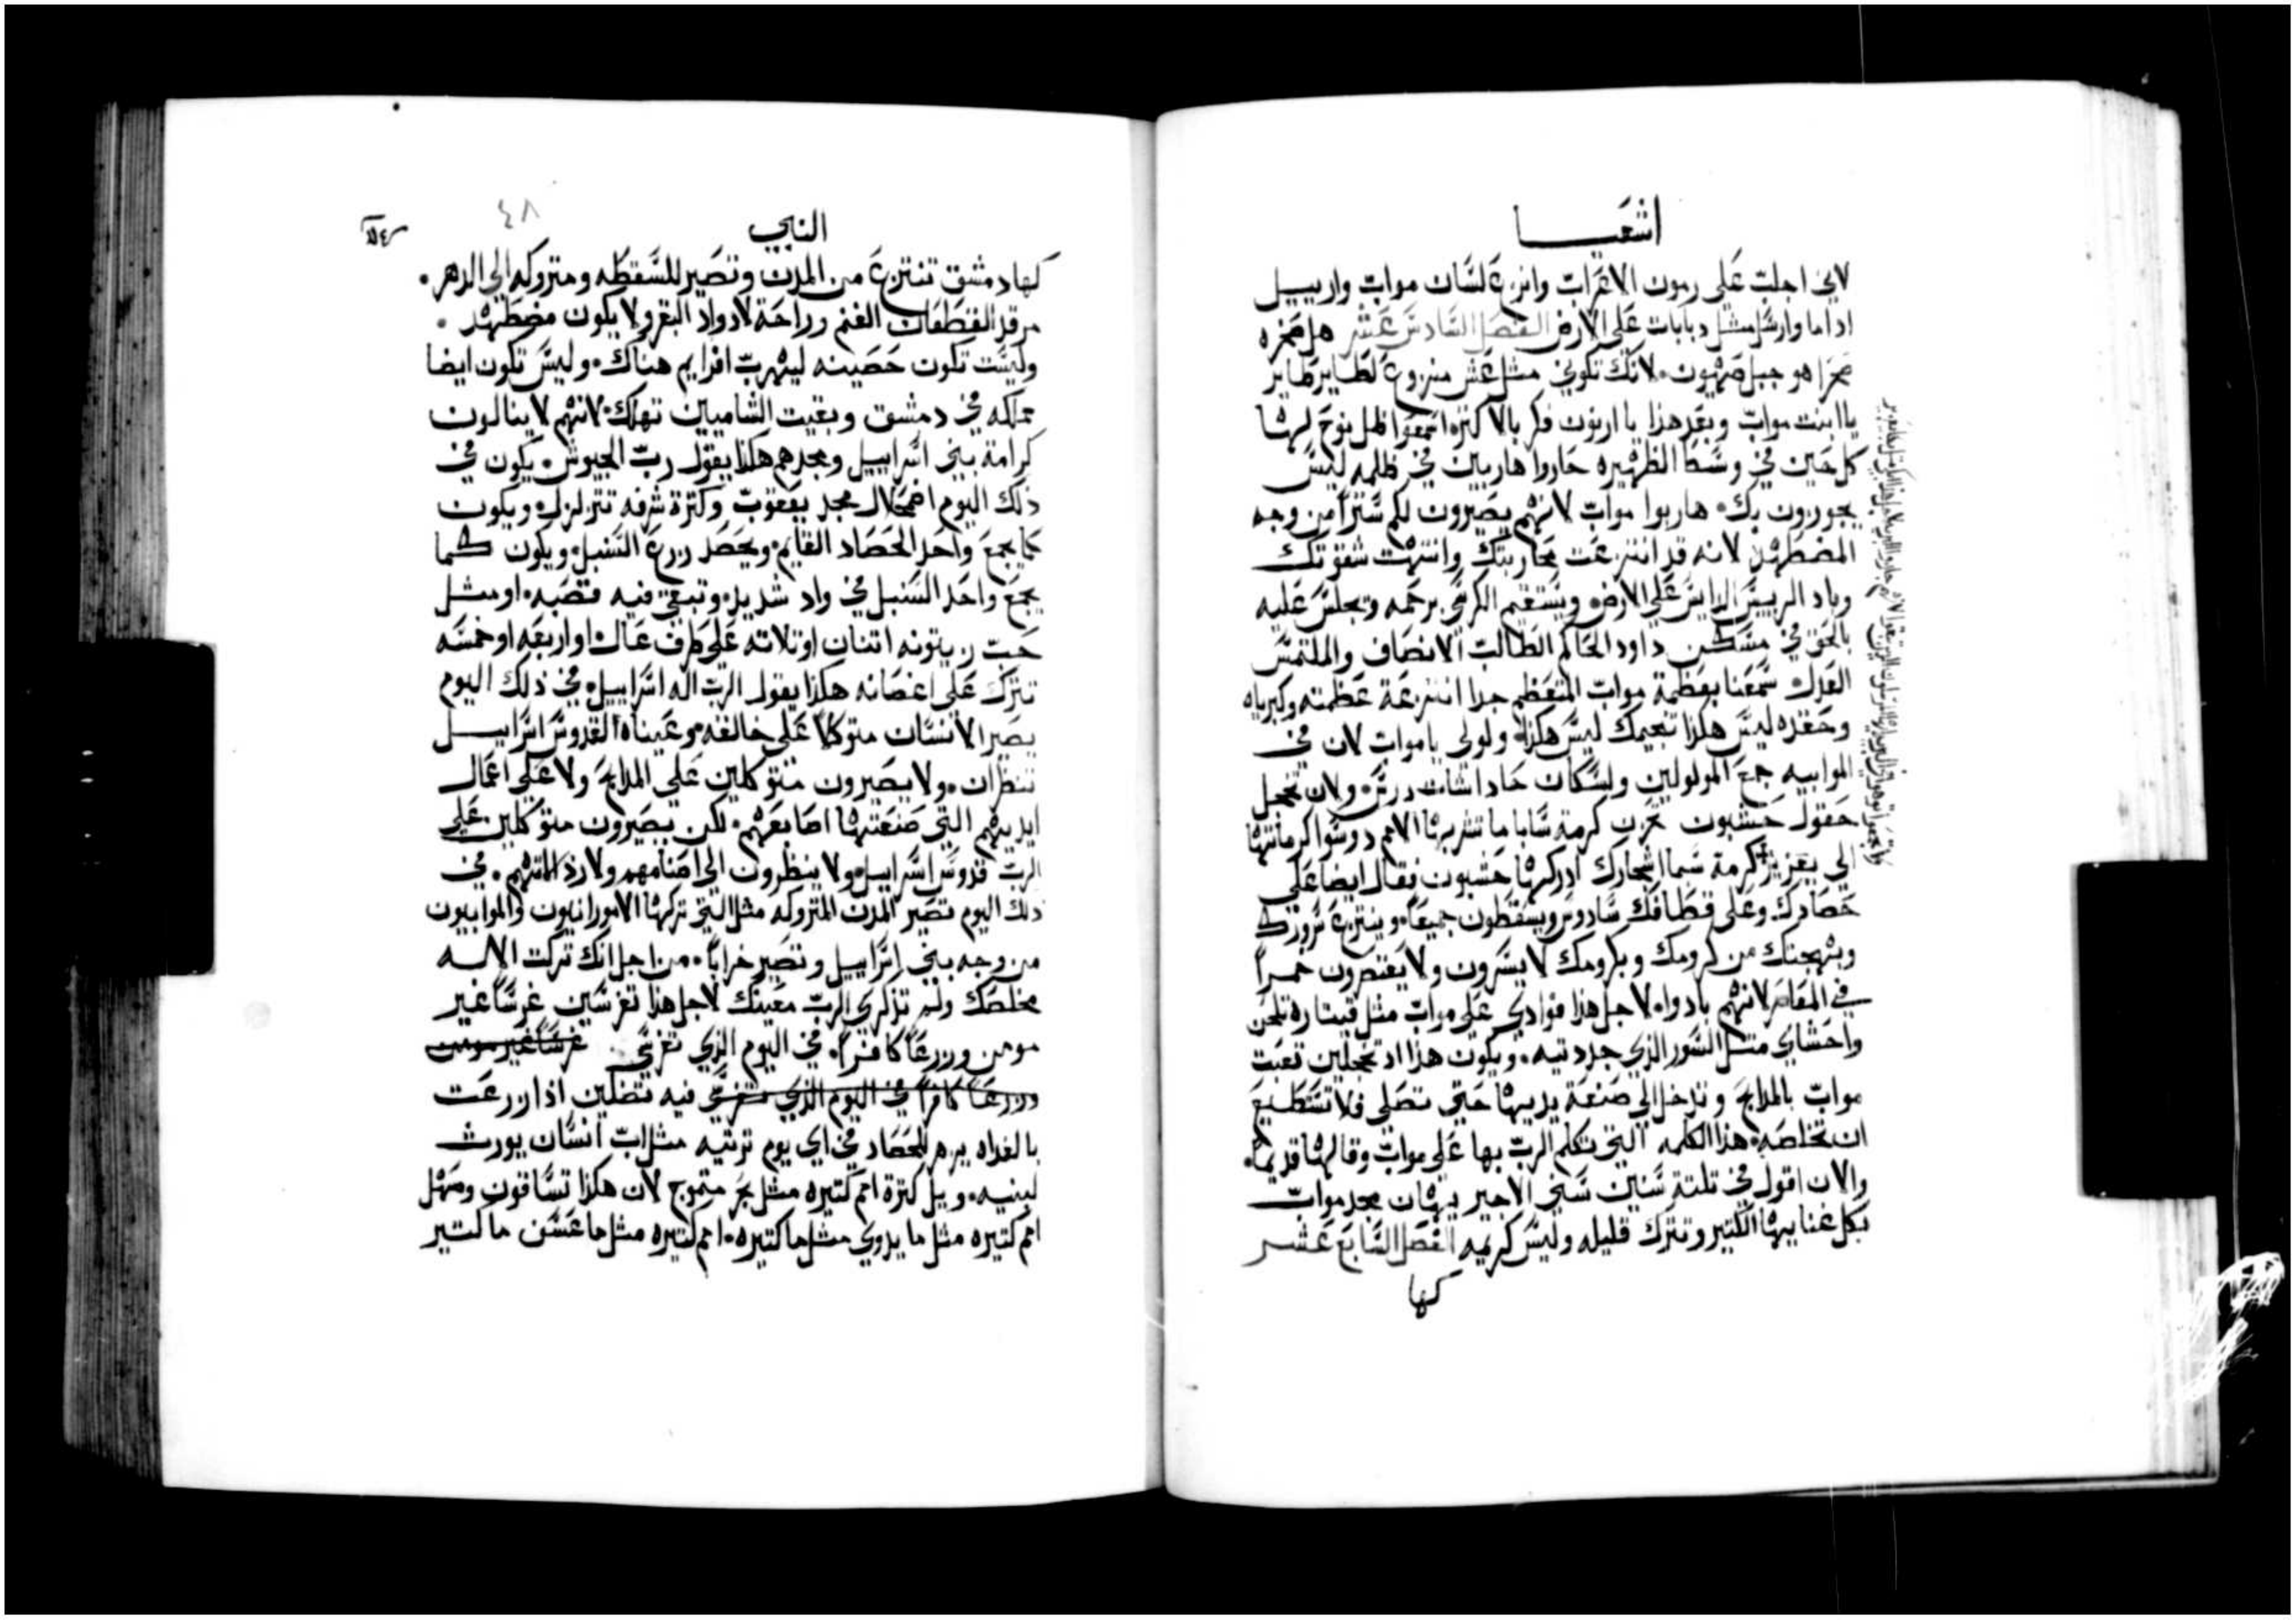 اشعيا
لاني اجلب على رمون الاعراب وانزع لسان مواب واربييل
اداما وارسل مثل دبابات على الارض الفصل السادس عشر هل صخره
صحرا هو جبل صهيون لانك تكوني مثل عش منزوع لطاير طاير
يا ابنت مواب وبعد هذا يا ارنون فكر بالاكثر اصنعوا ظل نوح لها
كل حين في وسط الظهيره حاروا هاربين في ظلمه ليس
يجوزون بك هاربوا مواب لانهم يصيرون لكم سترا من وجه
المضطهد لانه قد انتزعت محاربتك وانتهت شقوتك
وباد الرييس الدايس على الارض ويستقيم الكرسي برحمه ويجلس عليه
بالحق في مسكن داود الحاكم الطالب الانصاف والملتمس
العدل سمعنا بعظمة مواب المتعظم جدا انتزعة عظمته وكبرياه
وحقده ليس هكذا تنعيمك ليس هكذا ولولي يا مواب لان في
الموابيه جمع المولولين ولسكان حاداشات درس ولان تخجل
حقول حشبون تحزن كرمة سابا ما تشربها الامم دوسوا كرماتها
الي يعزير كرمة سما اشجارك ادركها حشبون فقال ايضا على
حصادك وعلى قطافك سادوس ويسقطون جميعا وينتزع سرورك
وبهجتك من كرومك وبكرومك لا يسرون ولا يعتصرون خمرا
في المعاصر لانهم بادوا لاجل هذا فوادي على مواب مثل قيتاره تلحن
واحشاي مثل السور الذي جددتيه ويكون هذا اذ تخجلين تعبت
مواب بالمدابح وتدخل الي صنعة يديها حتى تصلي فلا تستطيع
ان تخلصه هذا الكلمه التي تكلم الرب بها على مواب وقالها قديما
والان اقول في تلتة سنين سني الاجير يتهان مجد مواب
بكل غنايها الكتير وتترك قليله وليس كريمه الفصل السابع عشر
كها
النبي
٤٨
كها دمشق تنتزع من المدن وتصير للسقطه ومتروكه الى الدهر
مرقد القطعان الغنم وراحة لادواد البقر ولا يكون مضطهد
وليست تكون حصينه ليهرب افرايم هناك وليس تكون ايضا
مملكه في دمشق وبقيت الشاميين تهلك لانهم لا ينالون
كرامة بني اسراييل ومجدهم هكذا يقول رب الجيوش يكون في
ذلك اليوم اضمحلال مجد يعقوب وكترة شرفه تتزلزل ويكون
كما يجمع واحد الحصاد القايم ويحصد زرع السنبل ويكون كما
يجمع واحد السنبل في واد شديد وتبقى فيه قصبه او مثل
حب زيتونه اتنان او تلاته على طرف عال او اربعه او خمسه
تترك على اغصانه هكذا يقول الرب اله اسراييل في ذلك اليوم
يصير الانسان متوكلا على خالقه وعيناه القدوس اسراييل
تنظران ولا يصيرون متوكلين على المدابح ولا على اعمال
ايديهم التي صنعتها اصابعهم لكن يصيرون متوكلين على
الرب قدوس اسراييل ولا ينظرون الى اصنامهم ولا رذالتهم في
ذلك اليوم تصير المدن المتروكه مثل التي تركها الامورانيون والموابيون
من وجه بني اسراييل وتصير خرابا من اجل انك تركت الاله
مخلصك ولم تذكري الرب معينك لاجل هذا تغرسين غرسا غير
مومن وزرعا كافرا في اليوم الذي تغرسي غرسا غير مومن
وزرعا كافرا في اليوم الذي تغرسي فيه تضلين اذا زرعت
بالغداه يزهر للحصاد في اي يوم ترتيه مثل اب انسان يورث
لبنيه ويل كترة امم كتيره مثل بحر متموج لان هكذا تساقون وصهل
امم كتيره مثل ما يدوي مثل ما كتيره امم كتيره مثل ما عسف ما كتير